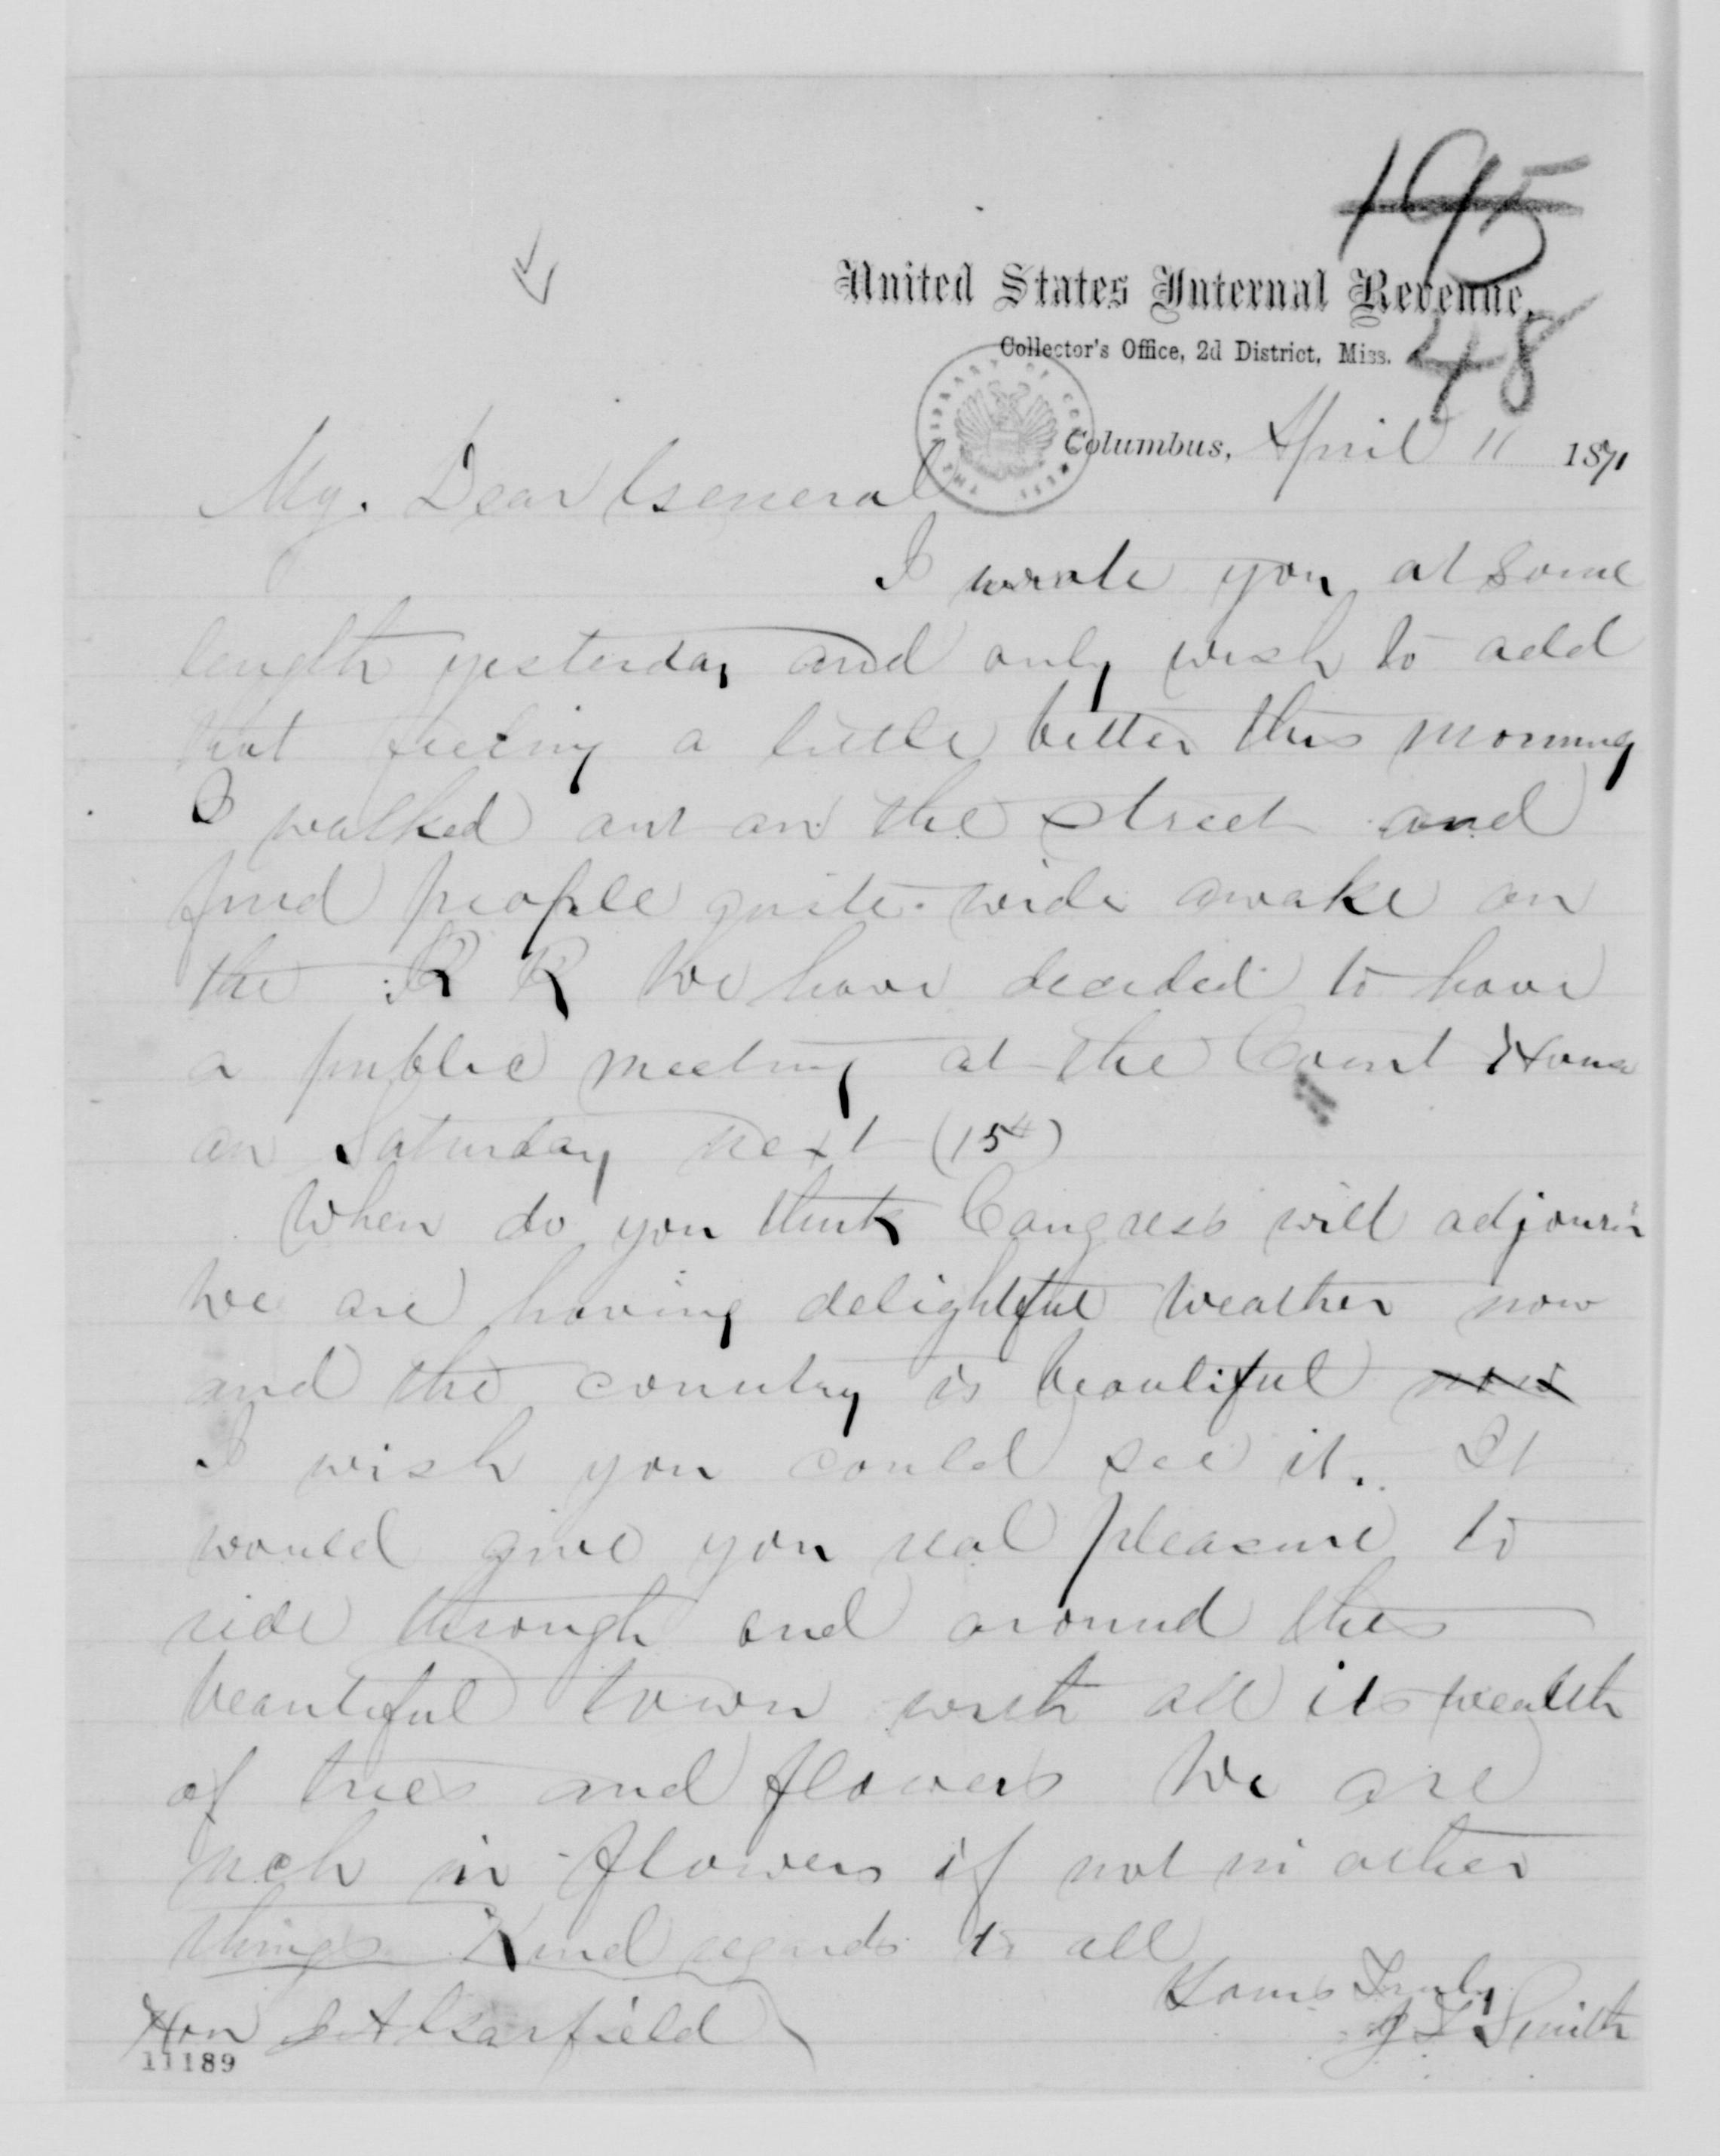 195
United States Internal Revenue,
48
Collector's Office, 2d District, Miss.
Columbus, April 11 1871
My. Dear General
I wrote you at some
length yesterday and only wish to add
that feeling a little better this morning
I walked out on the street and
find people quite wide awake on
the R R We have decided to have
a public meeting at the Court House
on Saturday next (15th)
When do you think Congress will adjourn
We are having delightful weather now
and the country is beautiful now
I wish you could see it. It
would give you real pleasure to
ride through and around this
beautiful town with all its wealth
of trees and flowers We are
rich in flowers if not in other
things Kind regards to all
Yours Truly
J L Smith
Hon J A Garfield
11189